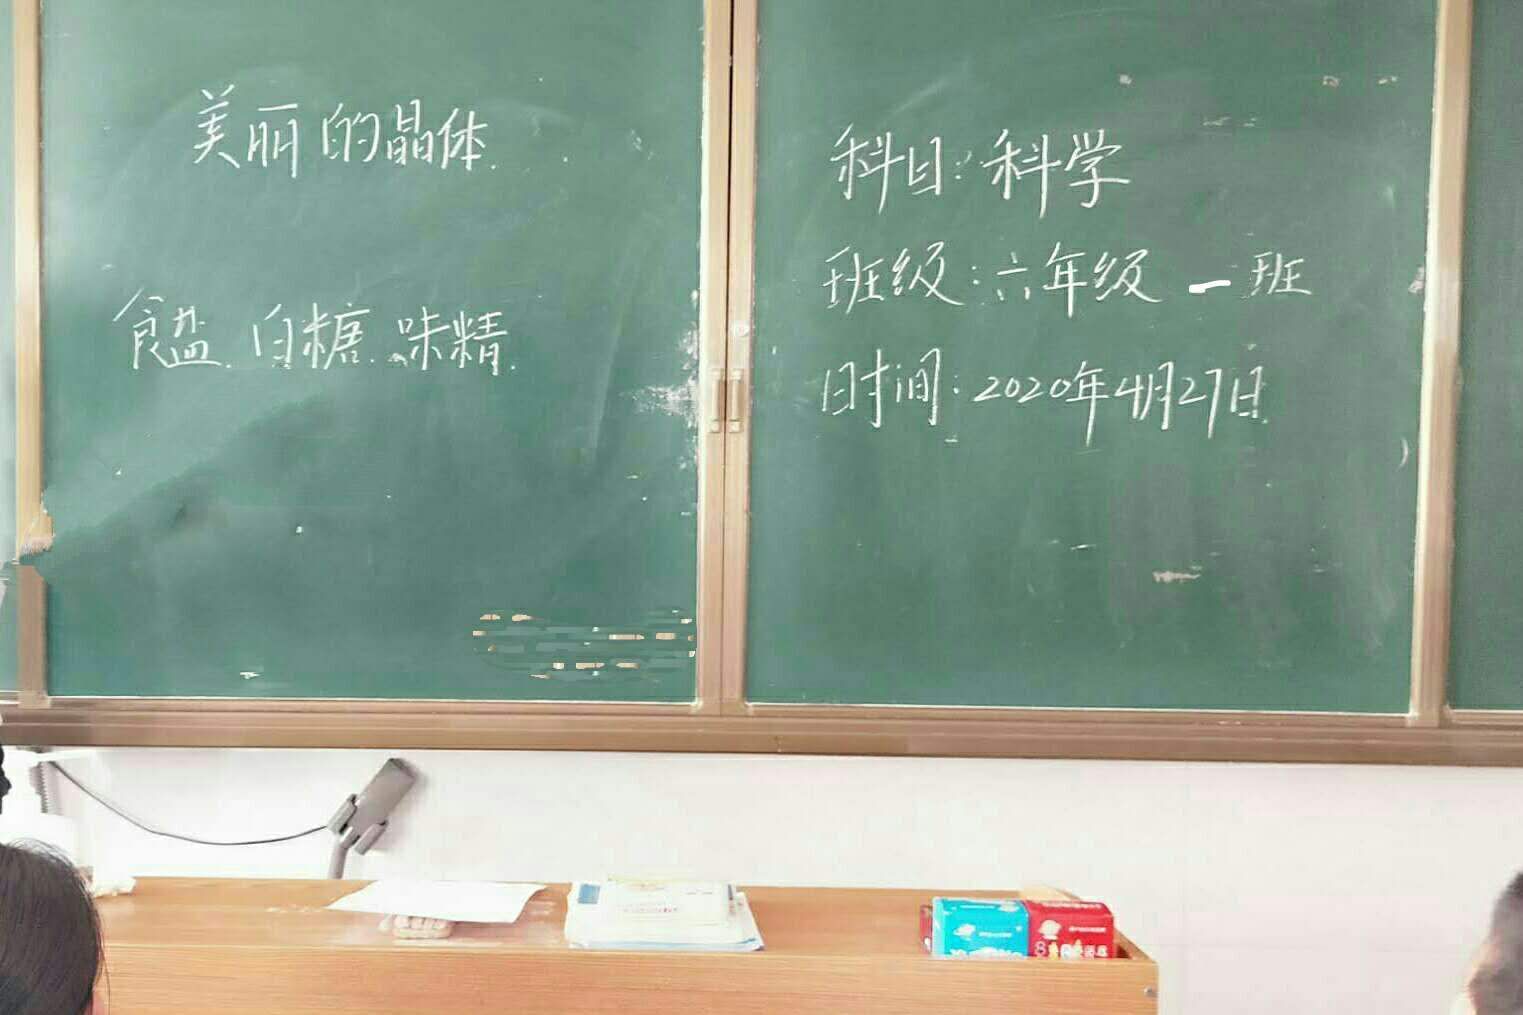 美丽的晶体.
食盐. 白糖. 味精.
科目: 科学
班级: 六年级 一班
时间: 2020年4月27日.